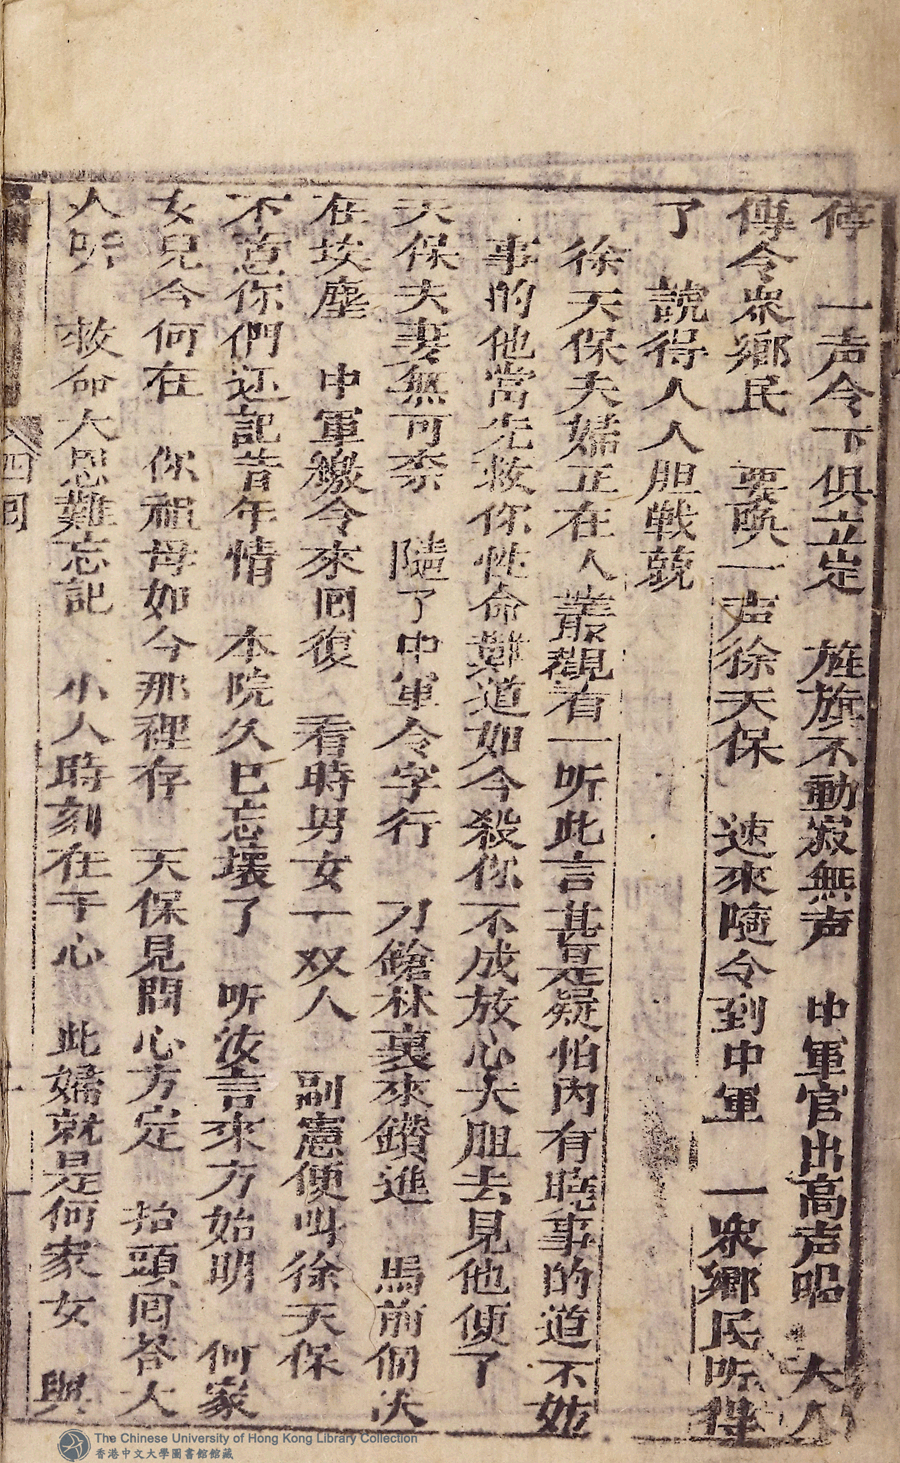 停　一声令下俱立定　旌旗不動寂無声　中軍官出高声唱　大人
傳令衆鄉民　要喚一声徐天保　速來隨令到中軍　一衆鄉民听得
了　說得人人胆戰兢
徐天保夫婦正在人叢觀看一听此言甚是疑怕內有曉事的道不妨
事的他當先救你性命難道如今殺你不成放心大胆去見他便了
天保夫妻無可奈　隨了中軍令字行　刀鎗林裏來鑽進　馬前個伏
在埃塵　中軍繳令來回復　看時男女一双人　副憲便叫徐天保
不意你們还記昔年情　本院久已忘壞了　听汝言來方始明　何家
女兒今何在　你祖母如今那裡存　天保見問心方定　抬頭回答大
人听　救命大恩難忘記　小人時刻在于心　此婦就是何家女　與
四回
The Chinese University of Hong Kong Library Collection
香港中文大學圖書館館藏